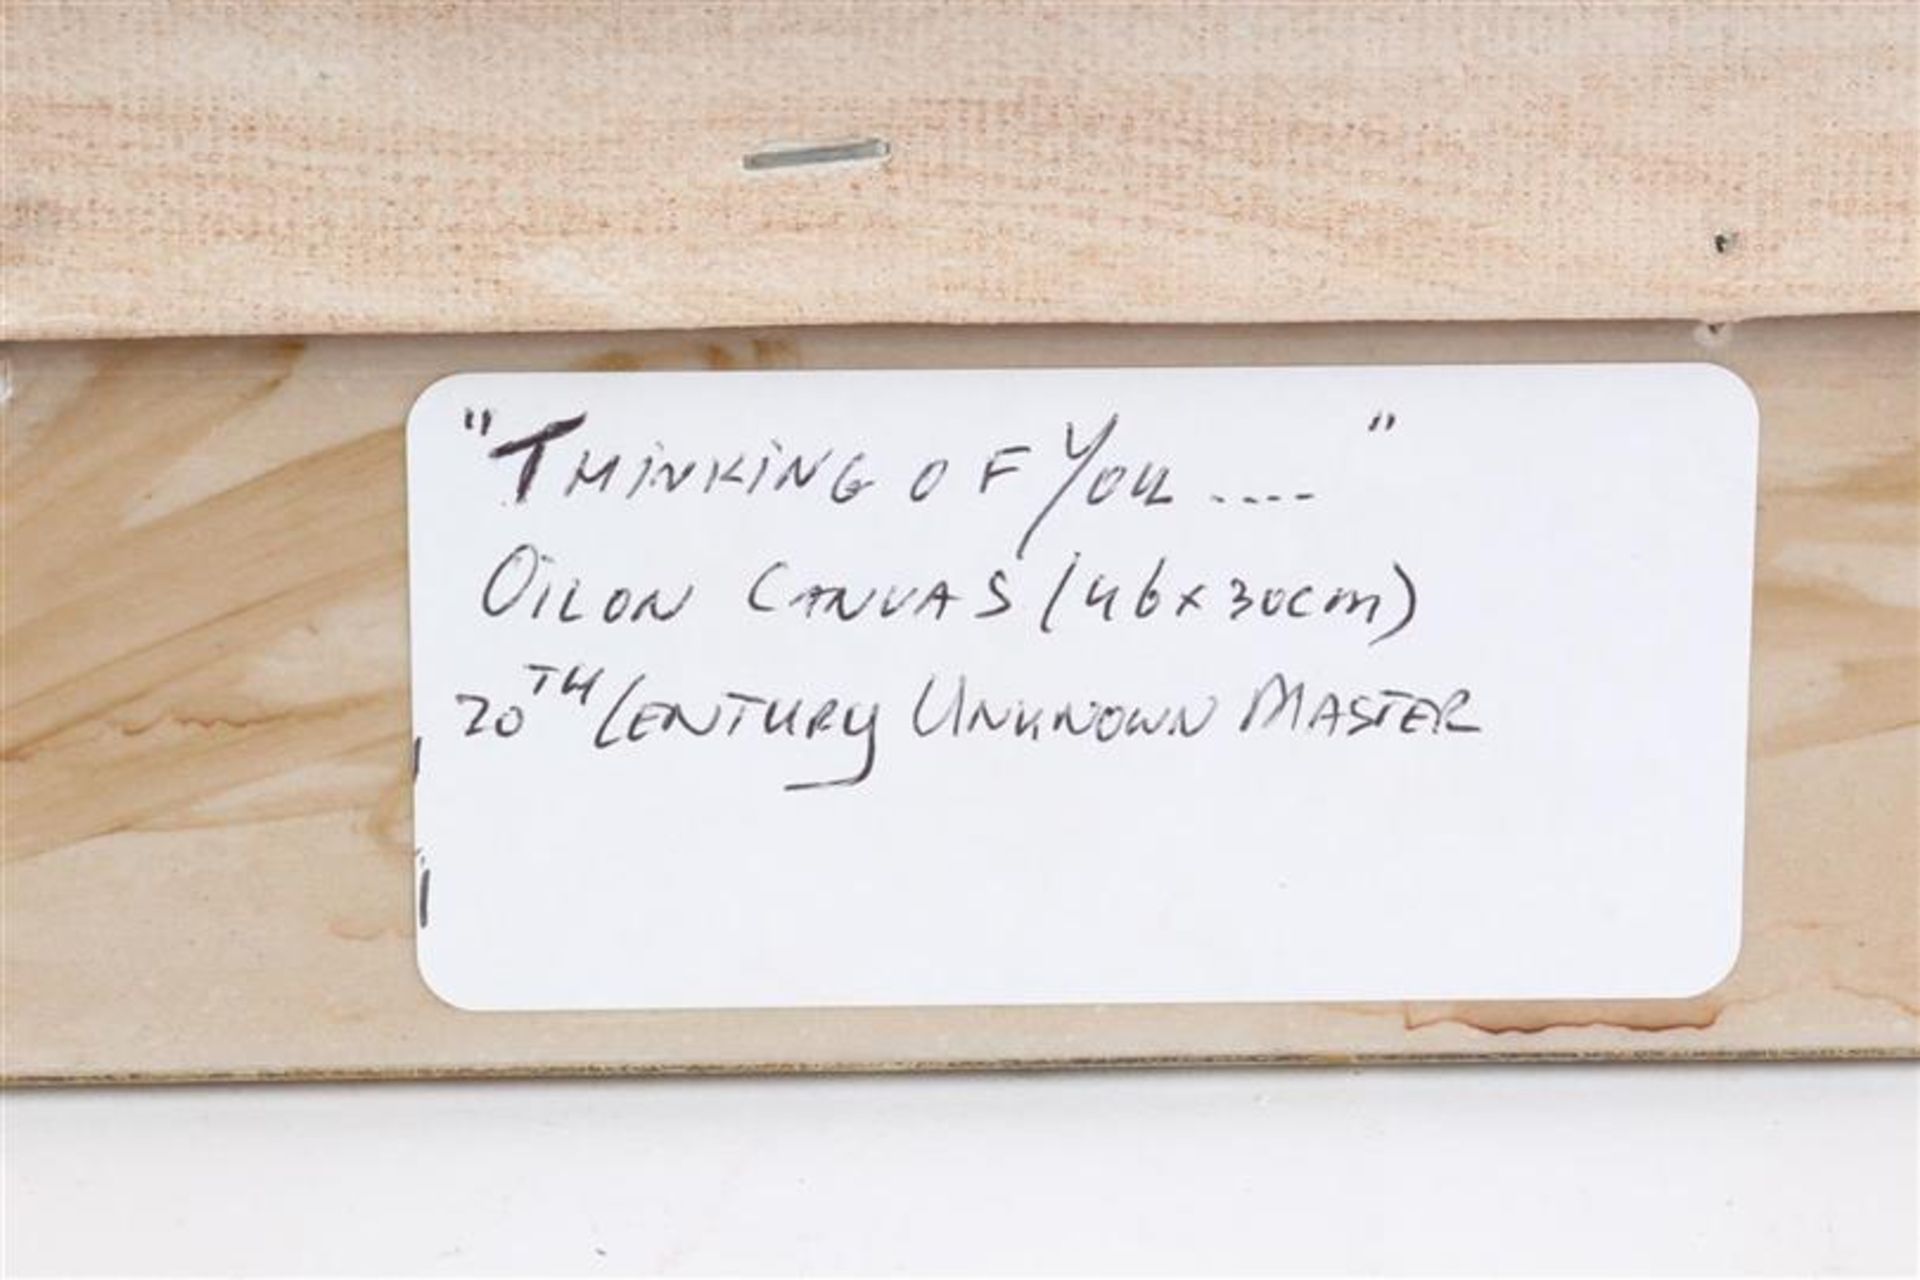 "Thinking of You .... "
Oil on Canvas (46x30cm)
20TH Century Unknown Master